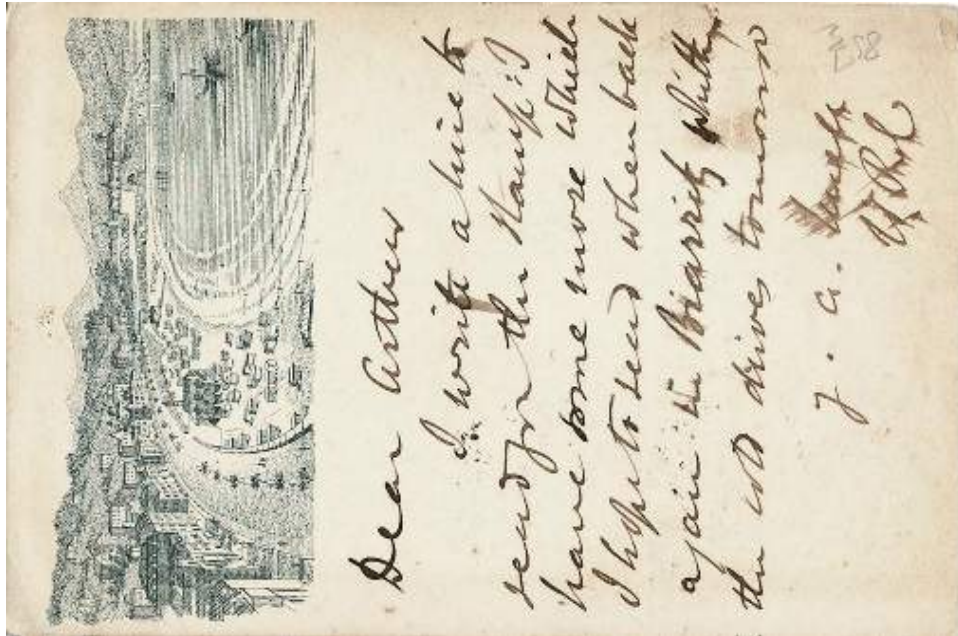 Dear Arthur
I write a line to
send for the stamps: I
have some more which
I hope to send when back
again in Biarritz
the cold drives tomorrow
y. a.